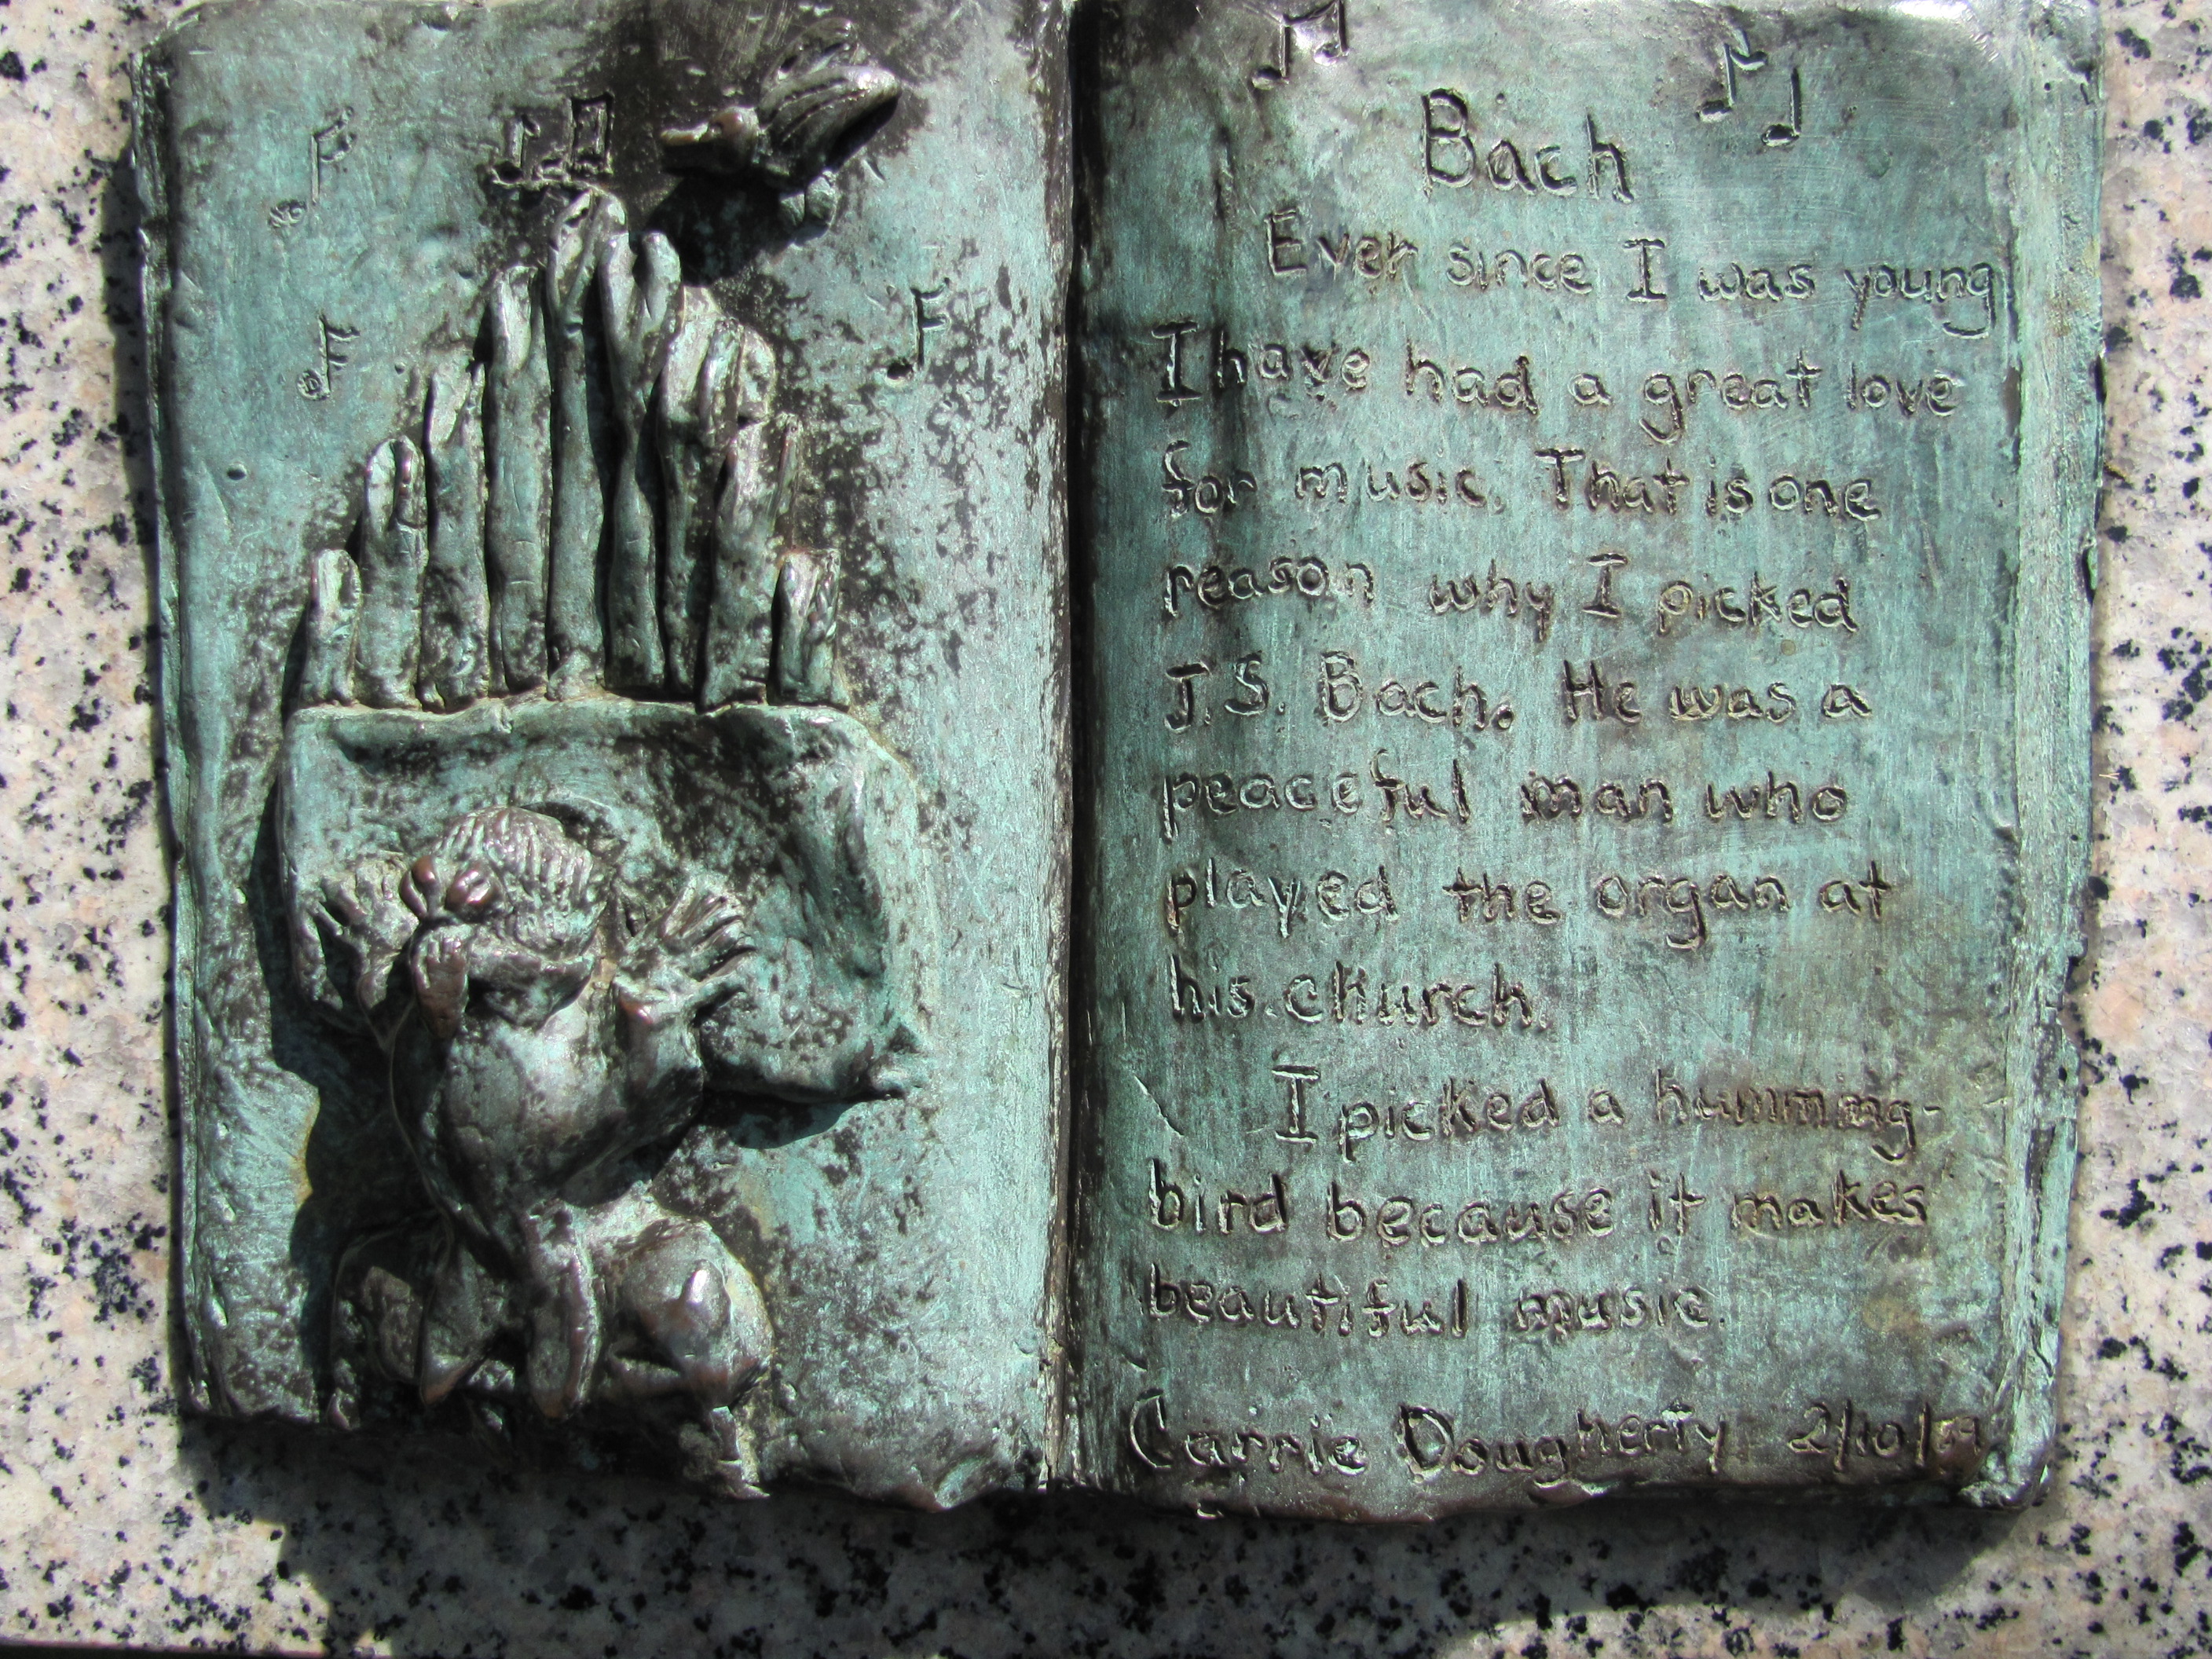 Bach
Ever since I was young
I have had a great love
for music. That is one
reason why I picked
J.S. Bach. He was a
peaceful man who
played the organ at
his church.
I picked a humming-
bird because it makes
beautiful music.
Carrie Dougherty 2/10/99